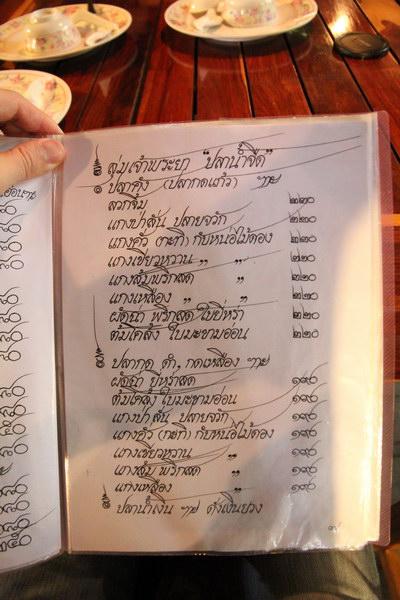 ลุ่มเจ้าพระยา "ปลาน้ำจืด"
ปลาคัง (ปลากดแก้ว) ฯลฯ
ลวกจิ้ม ๒๒๐
แกงป่าสับ ปลายจวัก ๒๒๐
แกงคั่ว (กะทิ) กับหน่อไม้ดอง ๒๒๐
แกงเขียวหวาน " " ๒๒๐
แกงส้มพริกสด " ๒๒๐
แกงเหลือง " " ๒๒๐
ผัดฉ่า พริกสด ใบยี่หร่า ๒๒๐
ต้มโคล้ง ใบมะขามอ่อน ๒๒๐
ปลากด ดำ, กดเหลือง ฯลฯ
ผัดฉ่า ยี่หร่าสด ๑๙๐
ต้มโคล้ง ใบมะขามอ่อน ๑๙๐
แกงป่าสับ ปลายจวัก ๑๙๐
แกงคั่ว (กะทิ) กับหน่อไม้ดอง ๑๙๐
แกงเขียวหวาน " ๑๙๐
แกงส้ม พริกสด " ๑๙๐
แกงเหลือง " ๑๙๐
ปลาน้ำเงิน ฯลฯ ดั่งเงินยวง